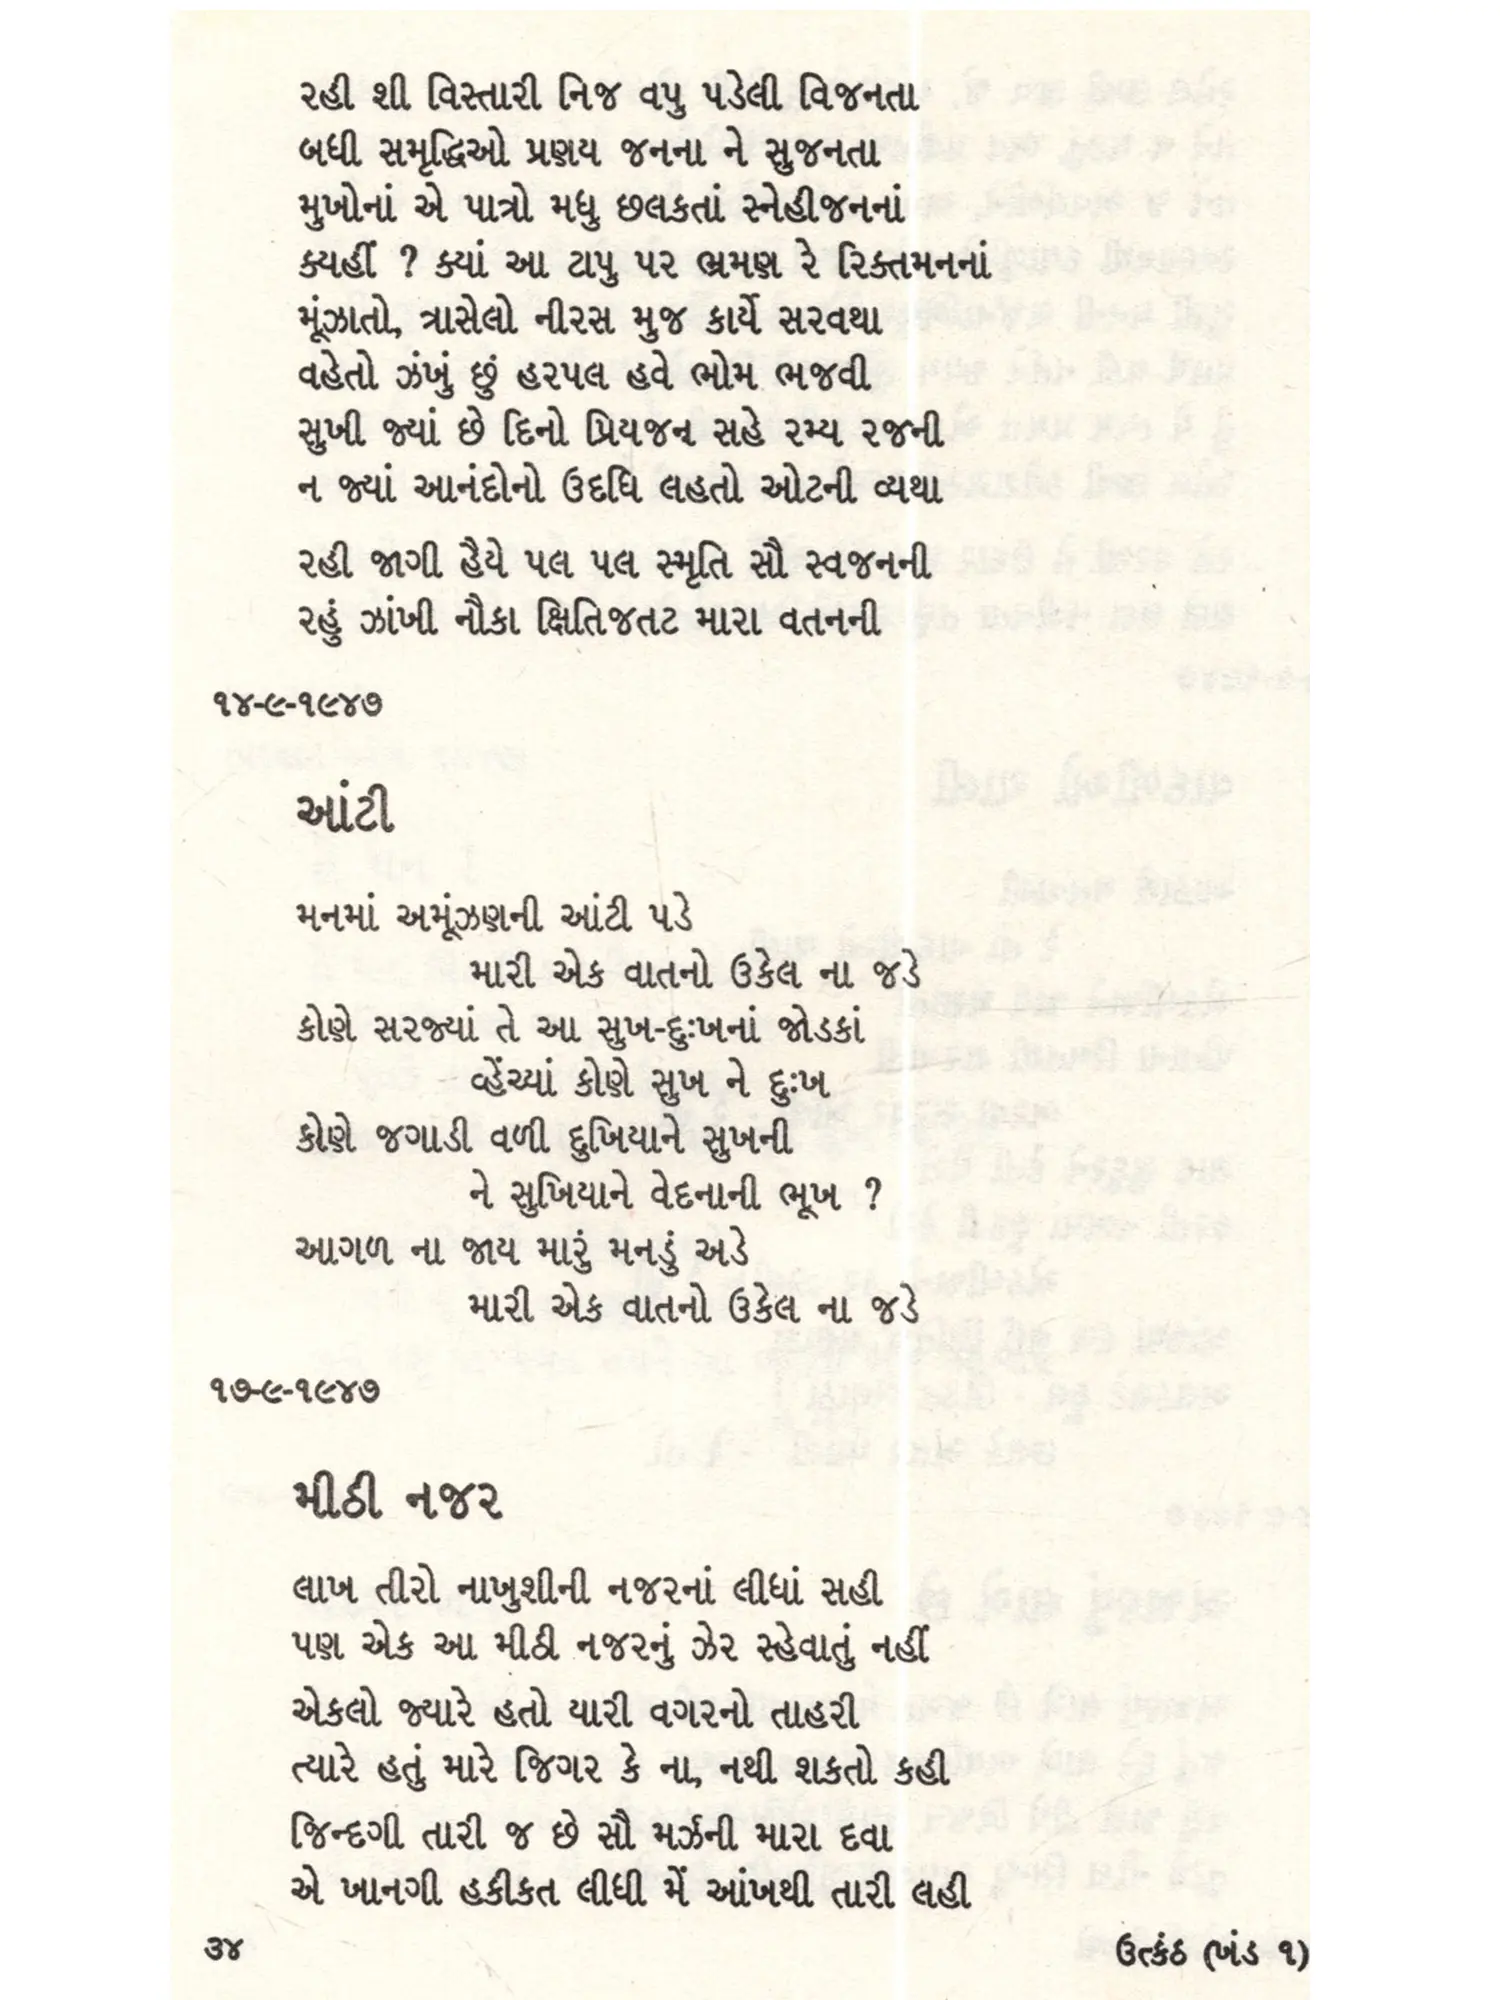 રહી શી વિસ્તારી નિજ વપુ પડેલી વિજનતા
બધી સમૃદ્ધિઓ પ્રણય જનના ને સુજનતા
મુખોનાં એ પાત્રો મધુ છલકતાં સ્નેહીજનનાં
ક્યહીં ? ક્યાં આ ટાપુ પર ભ્રમણ રે રિક્તમનનાં
મૂંઝાતો, ત્રાસેલો નીરસ મુજ કાર્યે સરવથા
વહેતો ઝંખું છું હરપલ હવે ભોમ ભજવી
સુખી જ્યાં છે દિનો પ્રિયજન સહે રમ્ય રજની
ન જ્યાં આનંદોનો ઉદધિ લહતો ઓટની વ્યથા
રહી જાગી હૈયે પલ પલ સ્મૃતિ સૌ સ્વજનની
રહું ઝાંખી નૌકા ક્ષિતિજતટ મારા વતનની
૧૪-૯-૧૯૪૭
આંટી
મનમાં અમૂંઝણની આંટી પડે
મારી એક વાતનો ઉકેલ ના જડે
કોણે સરજ્યાં તે આ સુખ-દુઃખનાં જોડકાં
વ્હેંચ્યાં કોણે સુખ ને દુઃખ
કોણે જગાડી વળી દુખિયાને સુખની
ને સુખિયાને વેદનાની ભૂખ ?
આગળ ના જાય મારું મનડું અડે
મારી એક વાતનો ઉકેલ ના જડે
૧૭-૯-૧૯૪૭
મીઠી નજર
લાખ તીરો નાખુશીની નજરનાં લીધાં સહી
પણ એક આ મીઠી નજરનું ઝેર સ્હેવાતું નહીં
એકલો જ્યારે હતો યારી વગરનો તાહરી
ત્યારે હતું મારે જિગર કે ના, નથી શકતો કહી
જિન્દગી તારી જ છે સૌ મર્ઝની મારા દવા
એ ખાનગી હકીકત લીધી મેં આંખથી તારી લહી
૩૪
ઉત્કંઠ (ખંડ ૧)